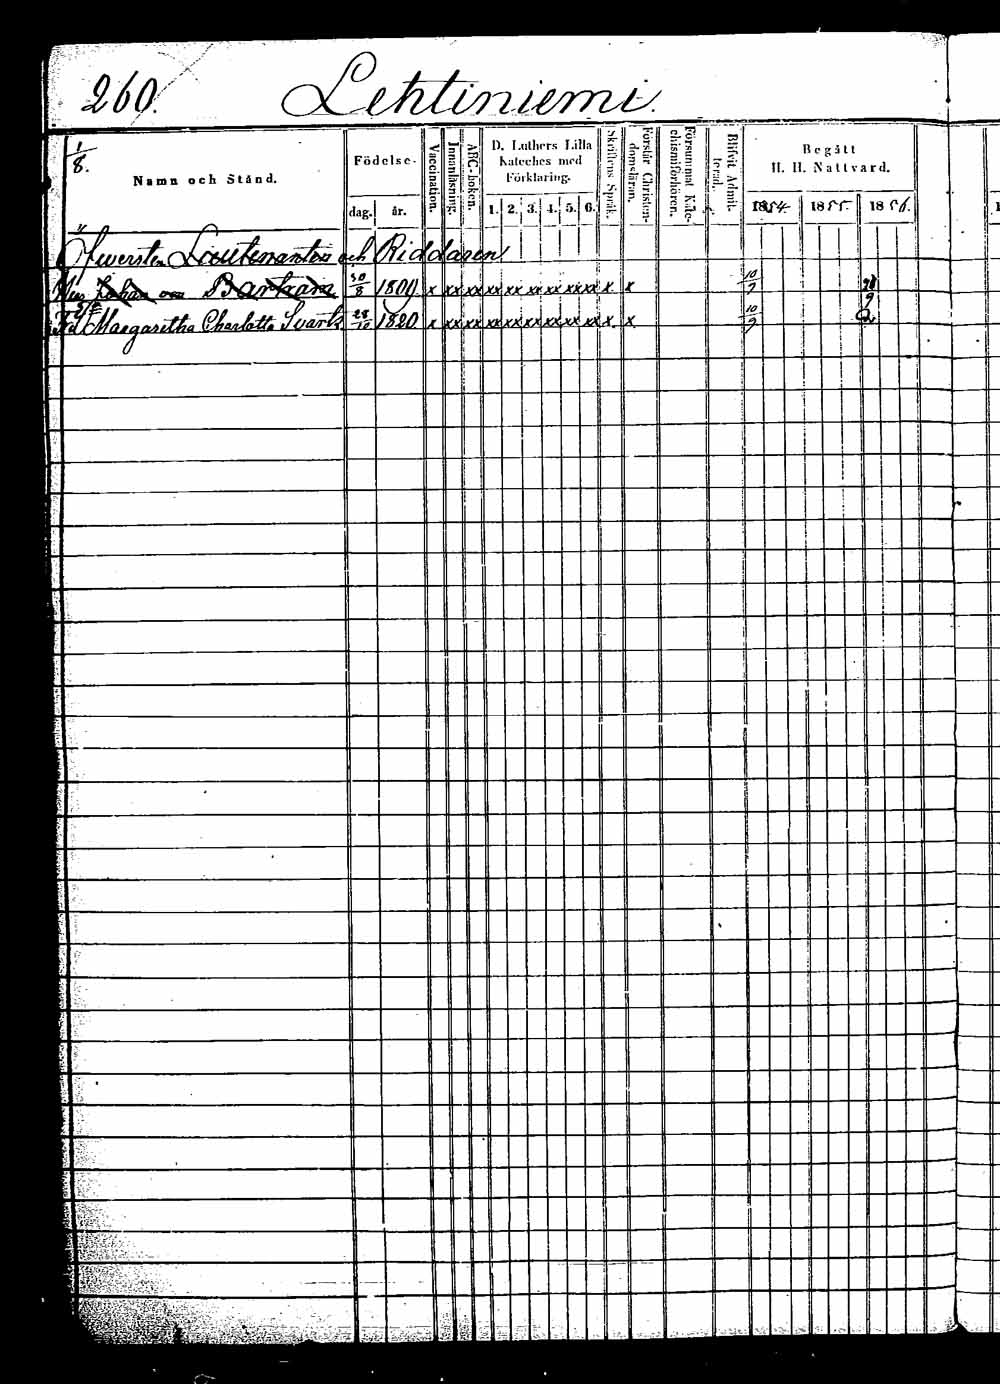 260. Lehtiniemi.
1/8.
Namn och Stånd.
Födelse-
dag. år.
Vaccination.
Innanläsning.
ABC-boken.
D. Luthers Lilla
Kateches med
Förklaring.
1. 2. 3. 4. 5. 6.
Skriftens Språk.
Förstår Christen-
domsläran.
Försummat Kate-
chismiförhören.
Blifvit Admit-
terad.
Begått
H. H. Nattvard.
1854. 1855. 1856.
Öfwersten Lieutenanten och Riddaren
Johan von Bartram 30/8 1809 x xx xx xx xx xx xx xx xx x x 10/9
Margaretha Charlotta Svartz 28/10 1820 x xx xx xx xx xx xx xx xx x x 10/9